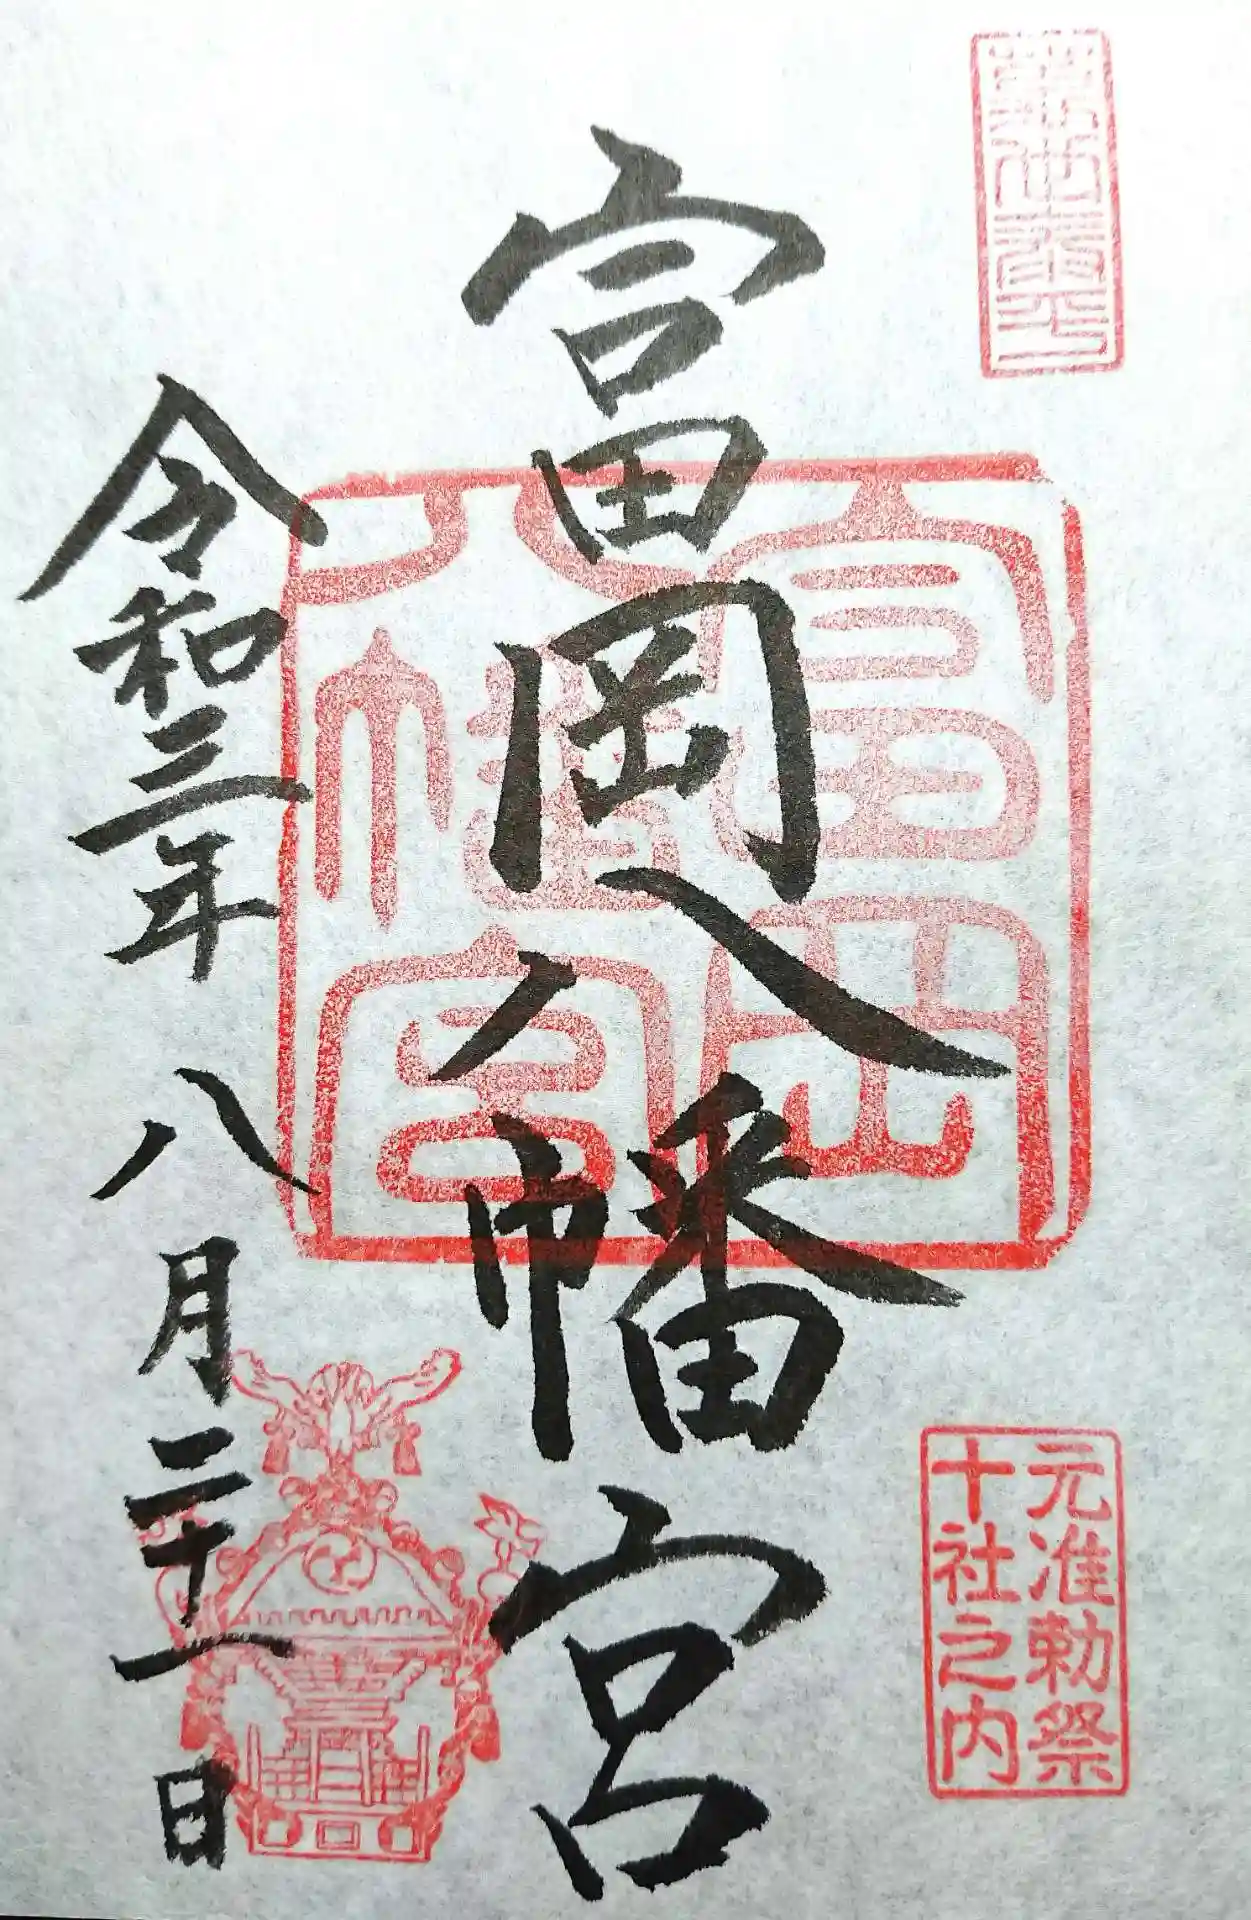 元准勅祭
十社之内
富岡八幡宮
富岡
八幡宮
令和三年八月二十一日